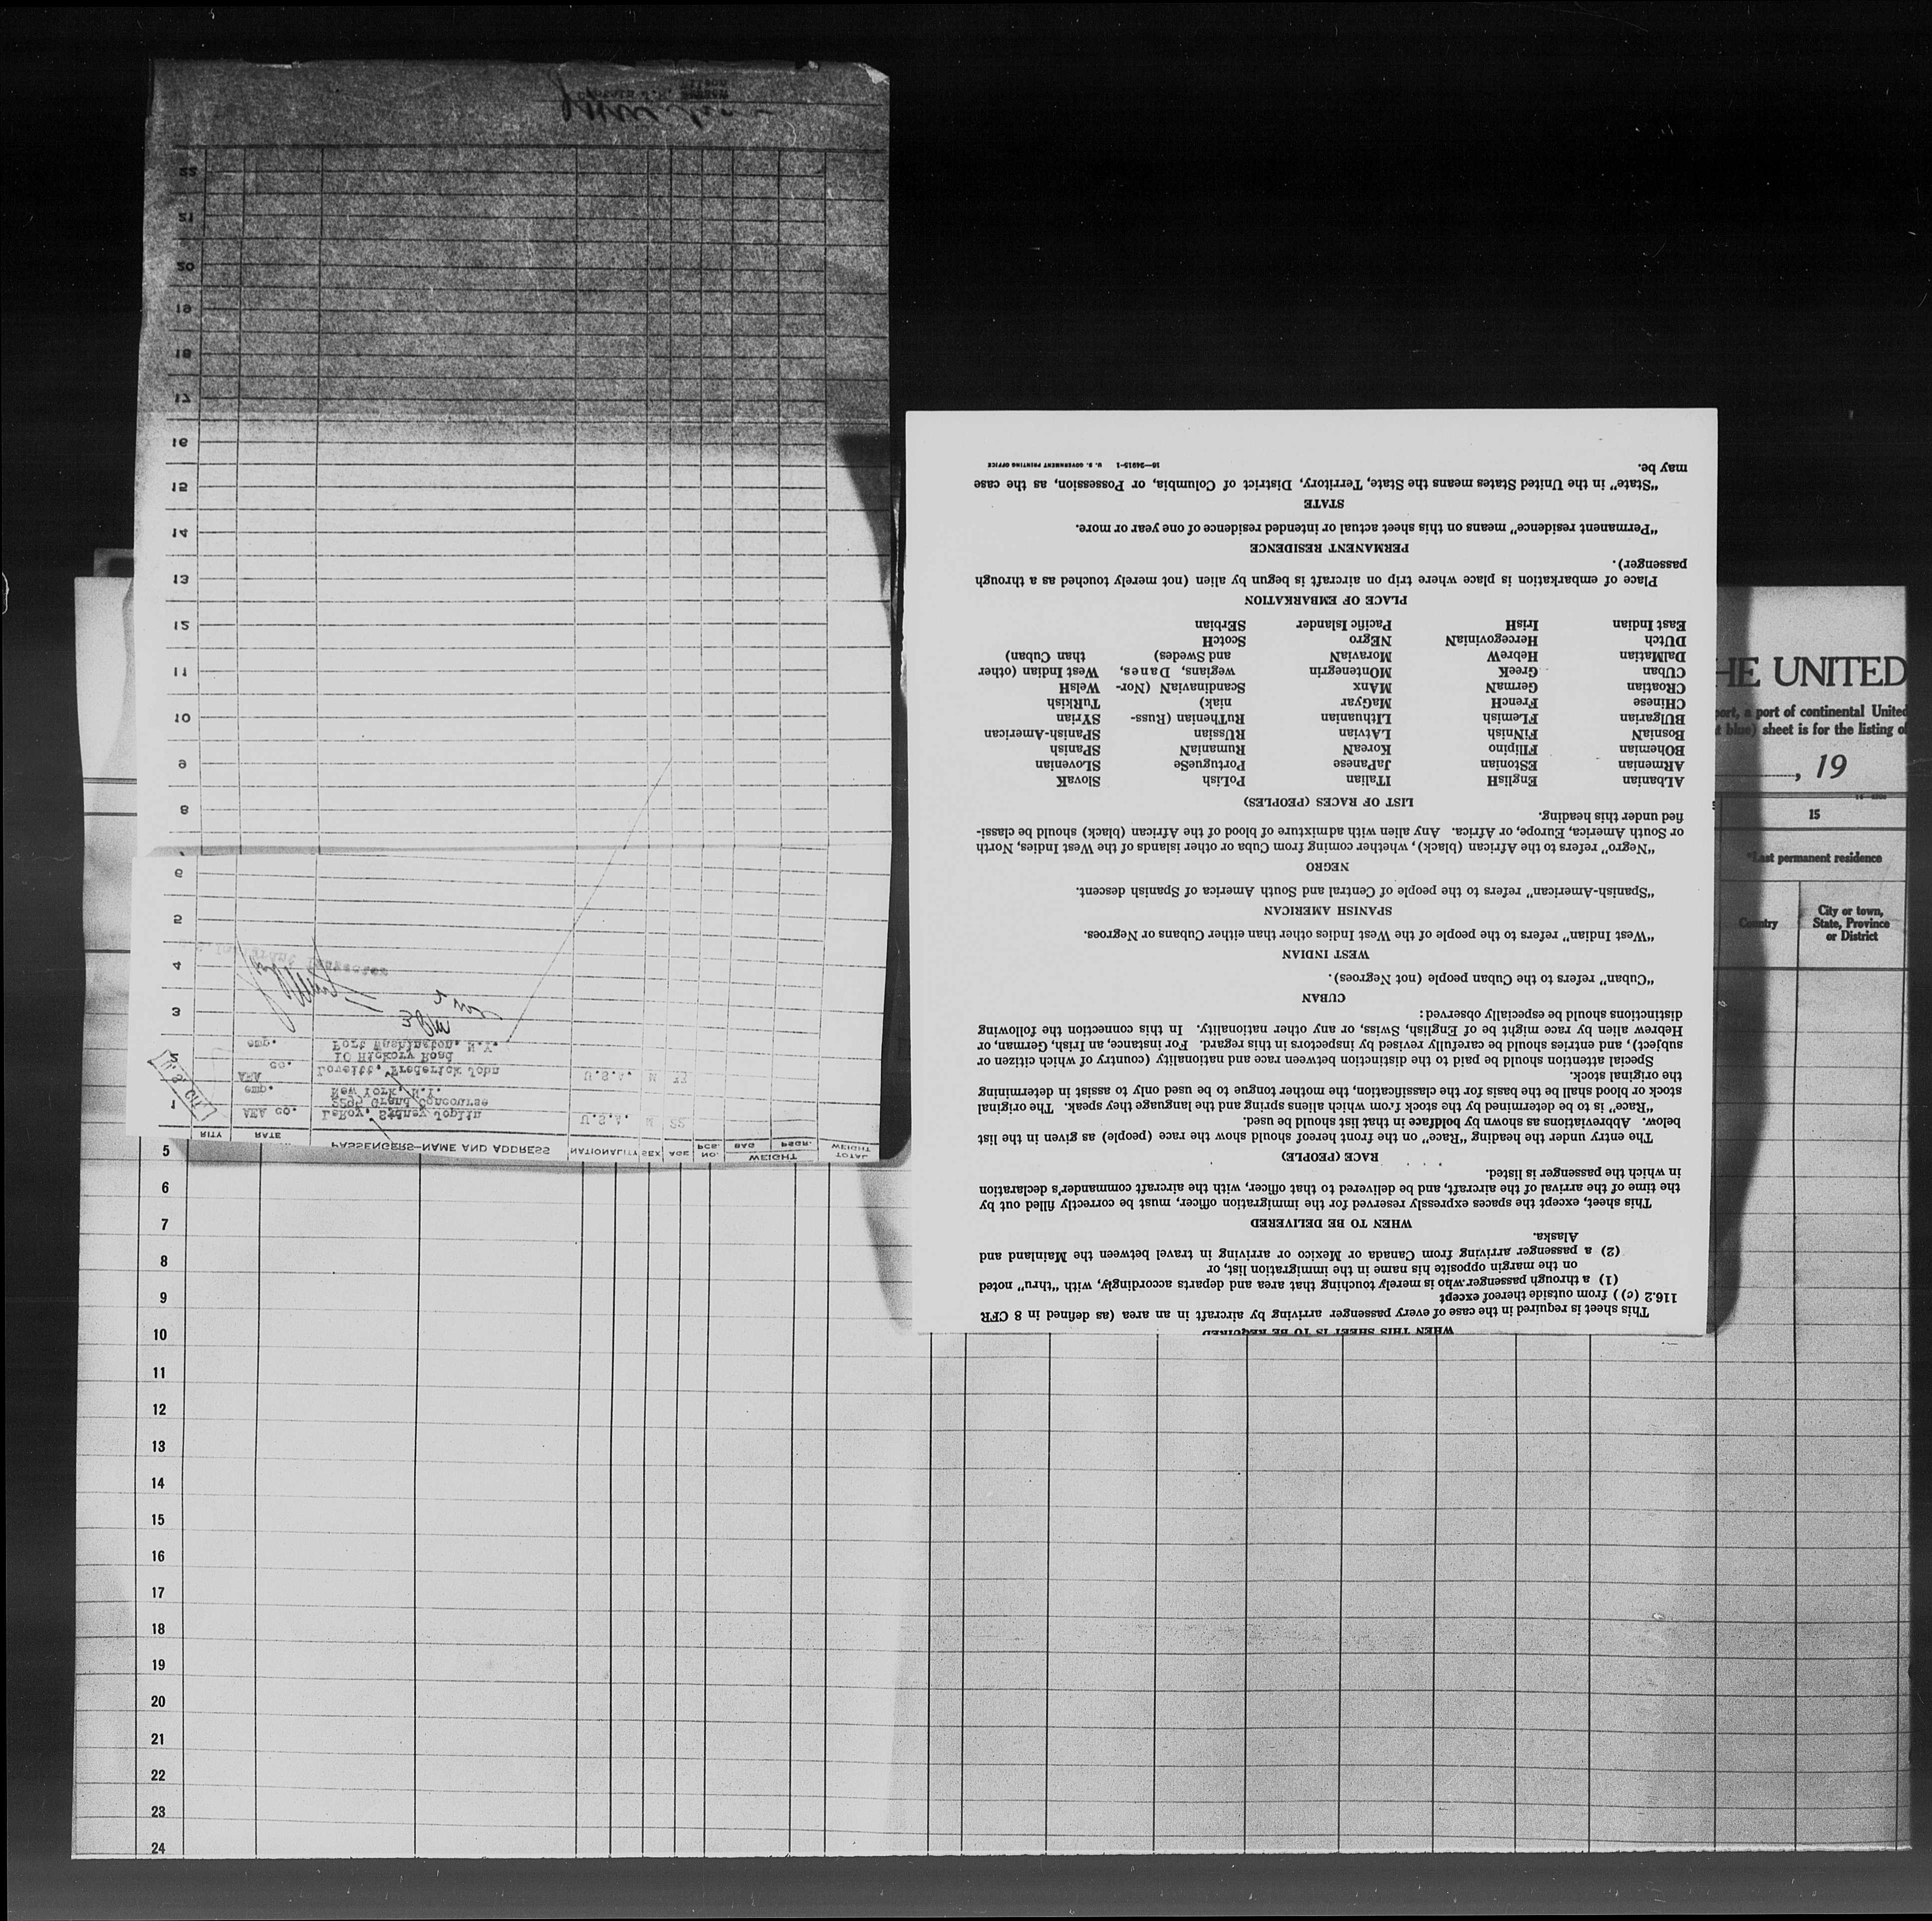 WHEN THIS SHEET IS TO BE REQUIRED
This sheet is required in the case of every passenger arriving by aircraft in an area (as defined in 8 CFR
116.2 (c)) from outside thereof except
(1) a through passenger who is merely touching that area and departs accordingly, with "thru" noted
on the margin opposite his name in the immigration list, or
(2) a passenger arriving from Canada or Mexico or arriving in travel between the Mainland and
Alaska.
WHEN TO BE DELIVERED
This sheet, except the spaces expressly reserved for the immigration officer, must be correctly filled out by
the time of the arrival of the aircraft, and be delivered to that officer, with the aircraft commander's declaration
in which the passenger is listed.
RACE (PEOPLE)
The entry under the heading "Race" on the front hereof should show the race (people) as given in the list
below. Abbreviations as shown by boldface in that list should be used.
"Race" is to be determined by the stock from which aliens spring and the language they speak. The original
stock or blood shall be the basis for the classification, the mother tongue to be used only to assist in determining
the original stock.
Special attention should be paid to the distinction between race and nationality (country of which citizen or
subject), and entries should be carefully revised by inspectors in this regard. For instance, an Irish, German, or
Hebrew alien by race might be of English, Swiss, or any other nationality. In this connection the following
distinctions should be especially observed:
CUBAN
"Cuban" refers to the Cuban people (not Negroes).
WEST INDIAN
"West Indian" refers to the people of the West Indies other than either Cubans or Negroes.
SPANISH AMERICAN
"Spanish-American" refers to the people of Central and South America of Spanish descent.
NEGRO
"Negro" refers to the African (black), whether coming from Cuba or other islands of the West Indies, North
or South America, Europe, or Africa. Any alien with admixture of blood of the African (black) should be classi-
fied under this heading.
LIST OF RACES (PEOPLES)
ALbanian EnglisH ITalian PoLish SlovaK
ARmenian EStonian JaPanese PortugueSe SLovenian
BOhemian FIlipino KoreaN RumaniaN SPanish
BosniaN FiNnish LAtvian RUssian SPanish-American
BUlgarian FLemish LIthuanian RuThenian (Russ- SYrian
CHinese FrencH MaGyar niak) TuRkish
CRoatian GermaN MAnx ScandinaviaN (Nor- WelsH
CUban GreeK MOntenegrin wegians, Danes, West Indian (other
DaMatian HebreW MoraviaN and Swedes) than Cuban)
DUtch HercegoviniaN NEgro ScotcH
East Indian IrisH Pacific Islander SErbian
PLACE OF EMBARKATION
Place of embarkation is place where trip on aircraft is begun by alien (not merely touched as a through
passenger).
PERMANENT RESIDENCE
"Permanent residence" means on this sheet actual or intended residence of one year or more.
STATE
"State" in the United States means the State, Territory, District of Columbia, or Possession, as the case
may be.
16—24915-1 U. S. GOVERNMENT PRINTING OFFICE
RITY RATE PASSENGERS—NAME AND ADDRESS NATIONALITY SEX AGE NO. PCS. WEIGHT BAG PSGR. TOTAL WEIGHT
1 AEA co. LeRoy, Sidney Joplin U.S.A. M
emp. Grand Concourse
New York, N.Y.
2 AEA Lovett, Frederick John U.S.A. M
co. 10 Hickory Road
emp. Port Washington, N.Y.
3
4 Inspector
5
6
8
9
10
11
12
13
14
15
16
17
18
19
20
21
22
HE UNITED
port, a port of continental United
t blue) sheet is for the listing of
, 19
15
*Last permanent residence
Country
City or town,
State, Province
or District
5
6
7
8
9
10
11
12
13
14
15
16
17
18
19
20
21
22
23
24